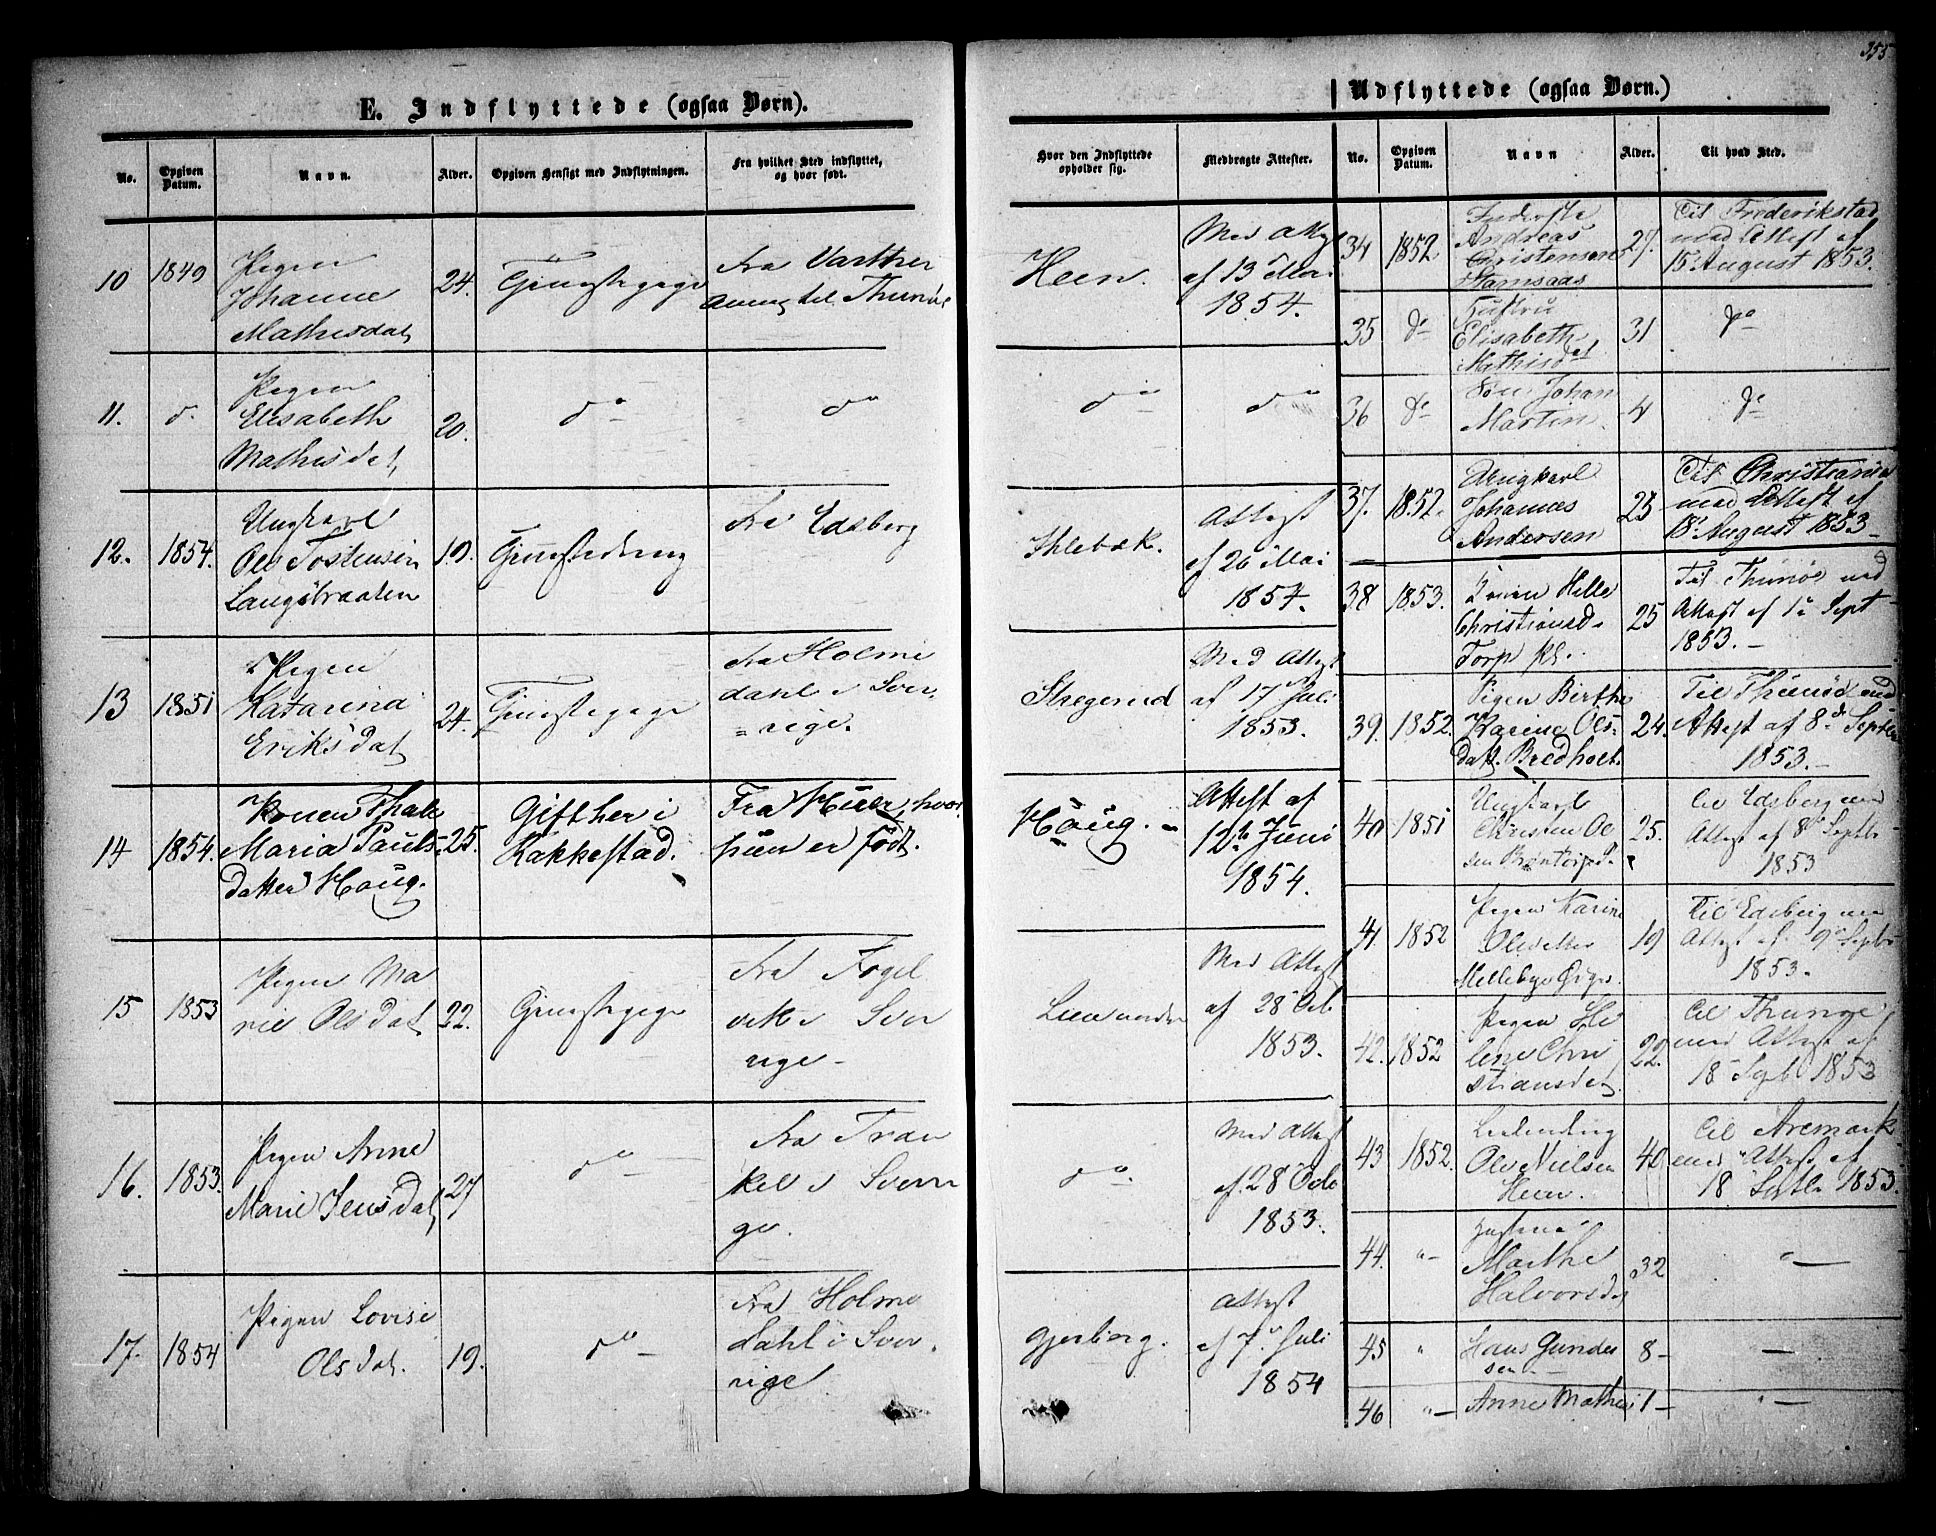 355
E. Indflyttede (ogsaa Børn).
No.
Opgiven Datum.
Navn.
Alder.
Opgiven Hensigt med Indflytningen.
Fra hvilket Sted indflyttet,
og hvor født.
Hvor den Indflyttede
opholder sig.
Medbragte Attester.
10
1849
Pigen
Johanne
Mathisdat
24.
Tjenestepige
Fra
Heen.
Med Attest
af 13 Mai
1854.
11.
do
Pigen
Elisabeth
Mathisdat
20.
do
do
do
do
12.
1854.
Ungkarl
Ole Tostensen
Langsbraaten
19.
Tjenestedreng
Fra Edsberg
Ihlebæk.
Attest
af 26 Mai
1854.
13
1851
Pigen
Katarina
Eriksdat
24.
Tjenestepige
Fra Holme
dahl i Sver
rige.
Stregerud
Med Attest
af 17 Juli
1853.
14
1854.
Konen Thale
Maria Pauls-
datter Haug.
25.
Gift her i
Rakkestad.
Fra hvor
hun er født.
Haug.
Attest af
12te Juni
1854.
15
1853
Pigen Ma
rie Olsdat
22.
Tjenestepige
Fra Fogel
vik i Sver
rige
Lien nordre
Med Attest
af 28 Octb
1853.
16.
1853.
Pigen Anne
Marie Jensdat
27
do
Fra Tran
kel i Sverri
ge.
do.
Med Attest
af 28 Octb
1853.
17.
1854
Pigen Lovise
Olsdat.
19.
do
Fra Holme
dahl i Sver
rige.
Gjerberg.
Attest
af 7. Juli
1854
Udflyttede (ogsaa Børn.)
No.
Opgiven Datum.
Navn
Alder.
Til hvad Sted.
34
1852
Inderste
Andreas
Christensen
Stamsaas
27.
Til Frederikstad
med Attest af
15 August 1853.
35
do
Hustru
Elisabeth
Mathisdat
31
do
36
do
Søn Johan
Martin.
4
do
37.
1852.
Ungkarl
Johannes
Andersen
25
Til Christiania
med Attest af
18 August 1853
38
1853.
Helle
Christiansd.
Torp
25
Til Thunøe med
Attest af Sept
1853.
39.
1852.
Pigen Birthe
Karine Ols-
datt. Bredholt.
24.
Til Thunød med
Attest af 8de Septbr
1853.
40
1851
Ungkarl
Christen Ol
sen Brøntorp
25.
Til Edsberg med
Attest af 8de Septbr
1853
41
1852
Pigen Karine
Olsdatter
19
Til Edsberg med
Attest af 9 Septbr
1853.
42.
1852
Pigen He
lene Chri
stiansdat
22.
Til Thunøe
med Attest af
18 Septb 1853
43
1852.
Leilending
Ole Nielsen
Heen.
40
Til Aremark
med Attest af
18 Septb. 1853.
44.
"
Marthe
Halvorsdat
32
"
45
"
Hans Gunder
sen
8
46
"
Anne Mathea
1
"